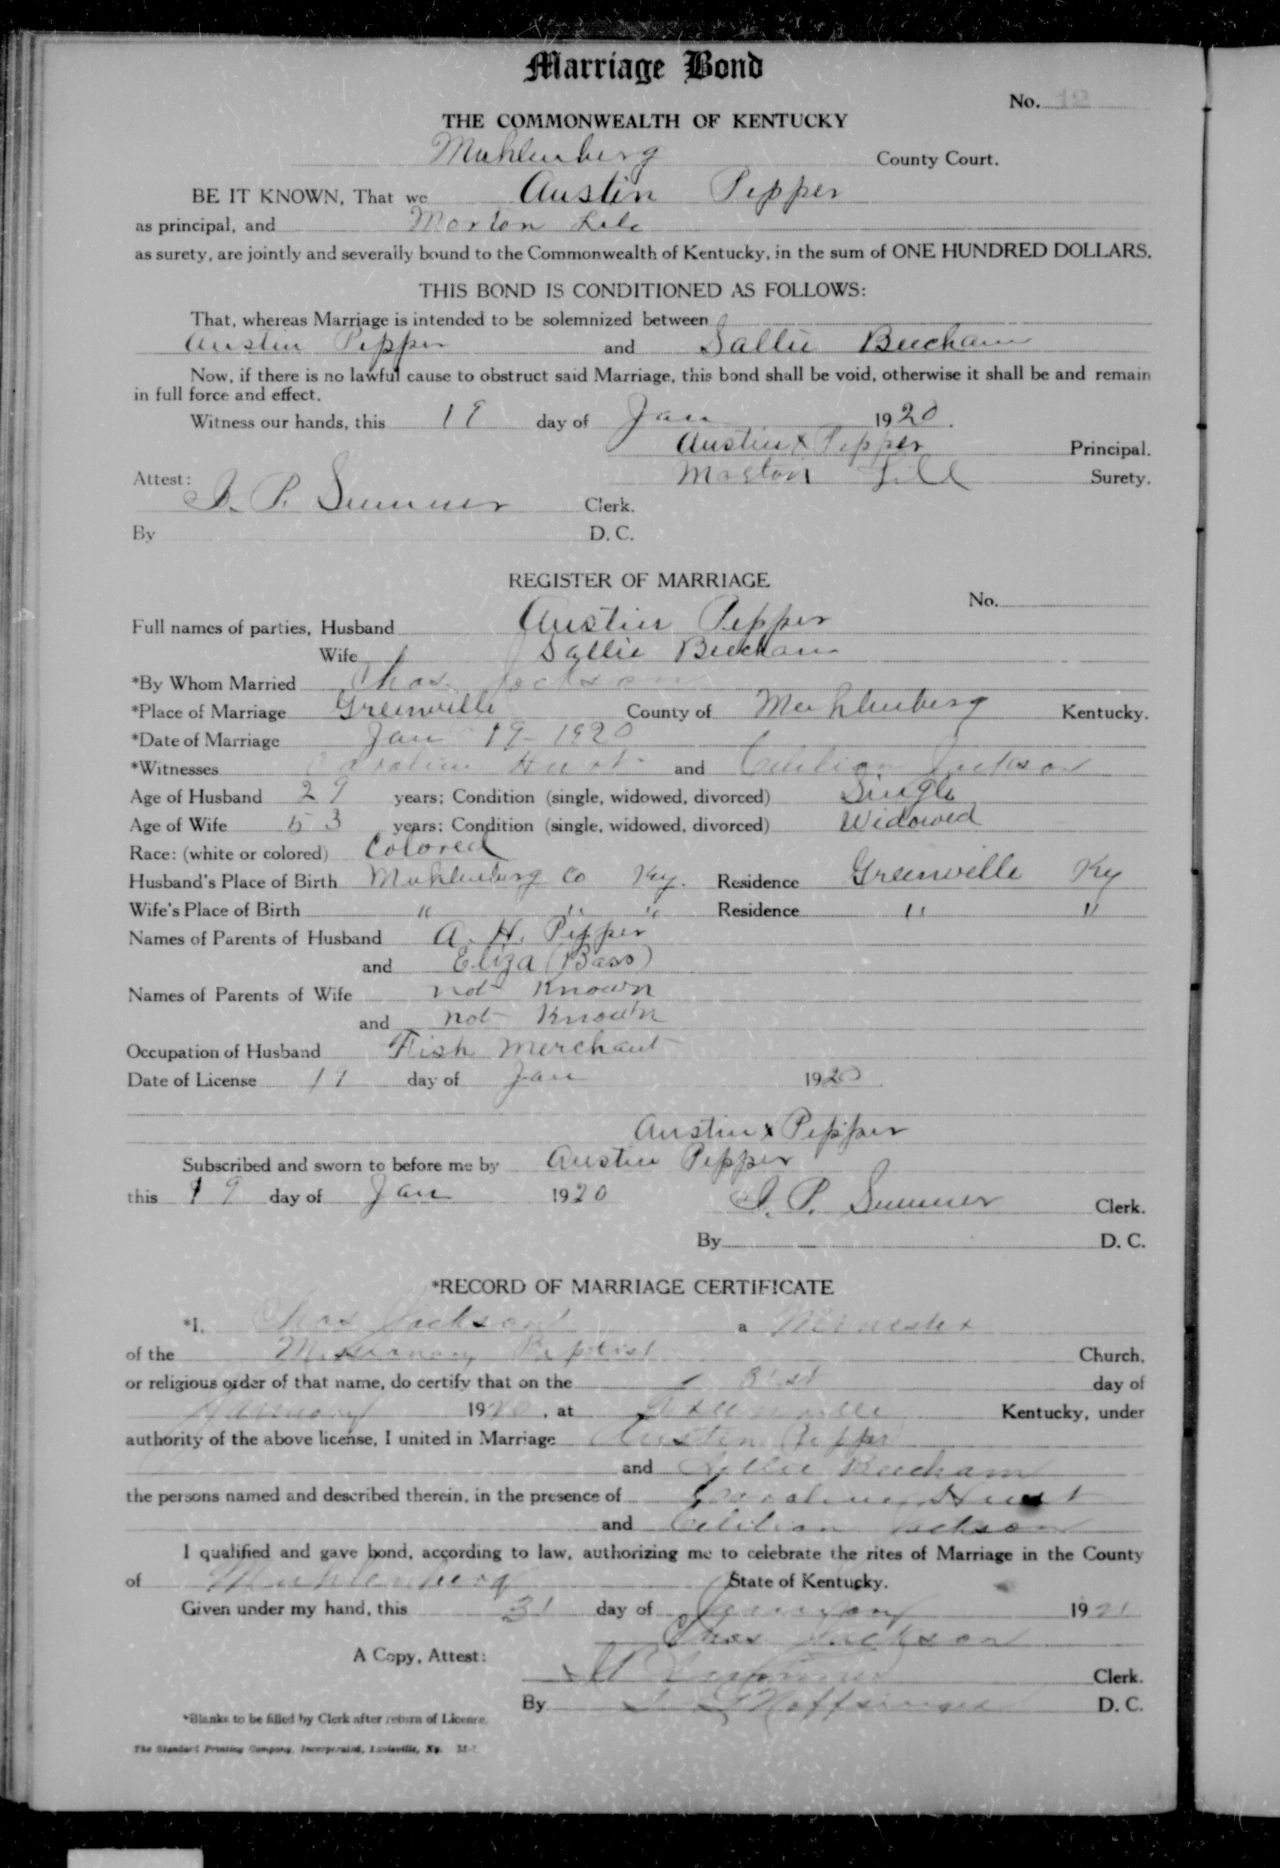 Marriage Bond
No. 12
THE COMMONWEALTH OF KENTUCKY
Muhlenberg County Court.
BE IT KNOWN, That we Austin Pepper
as principal, and Morton Lile
as surety, are jointly and severally bound to the Commonwealth of Kentucky, in the sum of ONE HUNDRED DOLLARS.
THIS BOND IS CONDITIONED AS FOLLOWS:
That, whereas Marriage is intended to be solemnized between
Austin Pepper and Sallie Beecham
Now, if there is no lawful cause to obstruct said Marriage, this bond shall be void, otherwise it shall be and remain
in full force and effect.
Witness our hands, this 19 day of Jan 1920.
Austin x Pepper Principal.
Attest: Morton Lile Surety.
Summer Clerk.
By D. C.
REGISTER OF MARRIAGE
No.
Full names of parties, Husband Austin Pepper
Wife Sallie Beecham
*By Whom Married Chas Jackson
*Place of Marriage Greenville County of Muhlenberg Kentucky.
*Date of Marriage Jan 19 - 1920
*Witnesses Caroline Hunt and Jackson
Age of Husband 29 years; Condition (single, widowed, divorced) Single
Age of Wife 53 years; Condition (single, widowed, divorced) Widowed
Race: (white or colored) Colored
Husband's Place of Birth Muhlenberg Co Ky. Residence Greenville Ky
Wife's Place of Birth " " " Residence " "
Names of Parents of Husband A. H. Pepper
and Eliza (Bass)
Names of Parents of Wife not Known
and not Known
Occupation of Husband Fish Merchant
Date of License 19 day of Jan 1920
Austin x Pepper
Subscribed and sworn to before me by Austin Pepper
this 19 day of Jan 1920 Summer Clerk.
By D. C.
*RECORD OF MARRIAGE CERTIFICATE
*I, Chas Jackson a Minister
of the Missionary Baptist Church,
or religious order of that name, do certify that on the 31st day of
January 1920, at Greenville Kentucky, under
authority of the above license, I united in Marriage Austin Pepper
and Sallie Beecham
the persons named and described therein, in the presence of Caroline Hunt
and Jackson
I qualified and gave bond, according to law, authorizing me to celebrate the rites of Marriage in the County
of Muhlenberg State of Kentucky.
Given under my hand, this 31 day of January 19
Chas Jackson
A Copy, Attest:
Clerk.
By D. C.
*Blanks to be filled by Clerk after return of License.
The Standard Printing Company, Incorporated, Louisville, Ky.